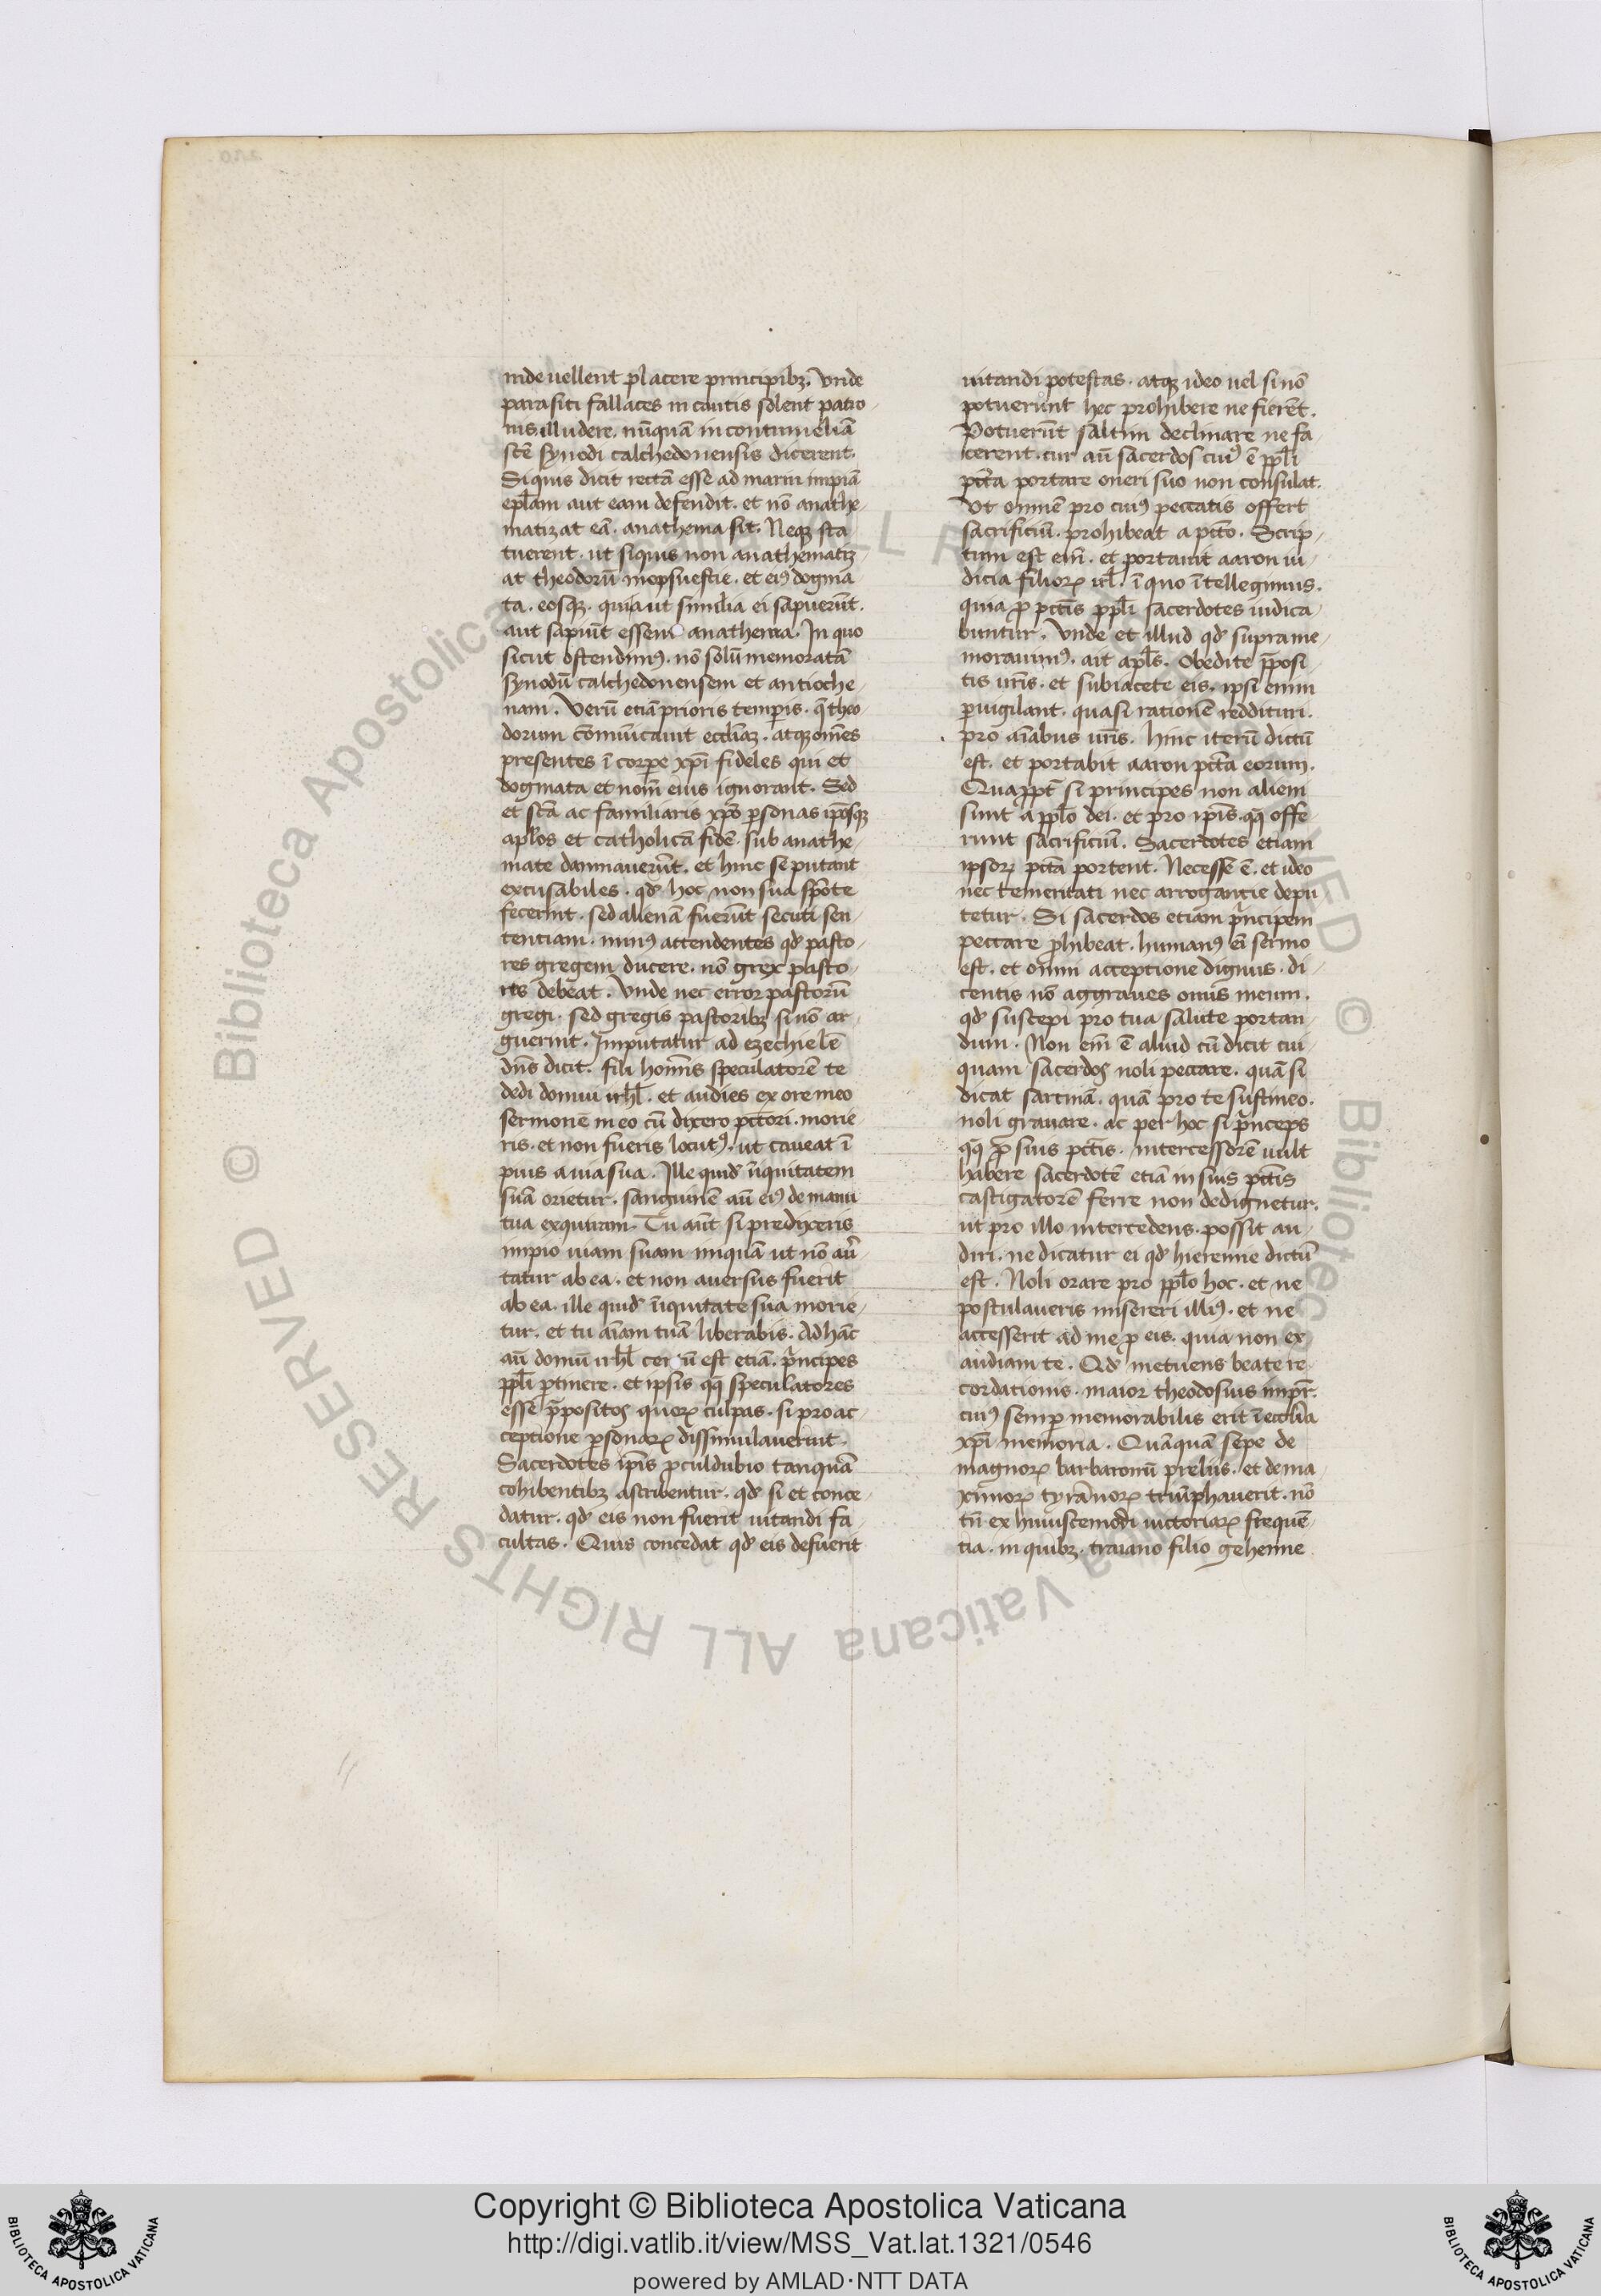 inde uellent placere principibꝫ. Vnde
parasiti fallaces in cautis solent patro
nis illudere. nūquā in contumeliā
scē synodi calchedonensis dicerent.
Si quis dicit rectā esse ad marin impiā
epl̄am aut eam defendit. et nō anathe
matizat eā. anathema sit. Neqꝫ sta
tuerent. ut siquis non anathematiz
at theodorū mopsuestie. et eiꝰ dogma
ta. eosqꝫ. quia ut similia ei sapuerūt.
aut sapiūt essent anathema. In quo
sicut ostendimꝰ. nō solū memoratā
synodū calchedonensem et antioche
nam. Verū etiā prioris temꝑis. q̄ theo
dorum cōmunicauit eccliaꝫ. atqꝫ omēs
presentes ī corꝑe xp̄i fideles qui et
dogmata et nom̄ eius ignorant. Sed
et scīa ac familiaris xp̄o ꝑsonas ip̄osqꝫ
apl̄os et catholicā fidē. sub anathe
mate damnauerūt. et hinc se putant
excusabiles. qđ hoc non sua spōte
fecerint. sed alienā fuerūt secuti sen
tentiam. minꝰ attendentes qđ pasto
res gregem ducere. nō grex pasto
res debeat. Vnde nec error pastorū
gregi. sed gregis pastoribꝫ si nō ar
guerint. Imputatur ad ezechielē
dn̄s dicit. fili homīs speculatorē te
dedi domui irhl̄. et audies ex ore meo
sermonē meo cū dixero pctōri. morie
ris. et non fueris locutꝰ. ut caueat ī
pius a uia sua. Ille quidē īiquitatem
suā orietur. sanguinē aū eiꝰ de manu
tua exquiram. Tu aūt si predixeris
impio uiam suam iniquā ut nō aū̉
tatur ab ea. et non auersus fuerit
ab ea. ille quidē īiquitate sua morie
tur. et tu aīam tuā liberabis. Ad hāc
aū domū irhl̄ certū est etiā. prīncipes
ppl̄i ꝑtinere. et ipsis qꝫ speculatores
esse p̄positos quoꝝ culpas. si pro ac
ceptione ꝑsonaꝝ dissimulauerint.
Sacerdotes ip̄is ꝓculdubio tanquā
cohibentibꝫ ascribentur. qđ si et conce
datur. qđ eis non fuerit uitandi fa
cultas. Quis concedat qđ eis defuerit
uitandi potestas. atqꝫ ideo uel si nō
potuerunt hec prohibere ne fierēt.
Potuerūt saltim declinare ne fa
cerent. cur aū sacerdos cuiꝰ ē ppl̄i
pctā portare oneri suo non consulat.
Vt omnē pro cuiꝰ peccatis offert
sacrificiū. prohibeat a pctō. Scrip
tum est em̄. et portauit aaron iu
dicia filioꝝ irl̄. ī quo ītellegimus.
quia ꝓ pctīs ppl̄i sacerdotes iudica
buntur. Vnde et illud qđ supra me
morauimꝰ. ait apl̄s. Obedite p̄posi
tis ur̄is. et subiacete eis. ipsi enim
ꝑuigilant. quasi rationē reddituri.
pro aīabus ur̄is. hinc iterū dictū
est. et portabit aaron pctā eorum.
Quappt̄ si principes non alieni
sunt a ppl̄o dei. et pro ip̄is. qꝫ offe
runt sacrificiū. Sacerdotes etiam
ipsoꝝ pctā portent. Necesse ē. et ideo
nec temeritati nec arrogantie depu
tetur. Si sacerdos etiam prīncipem
peccare ꝓhibeat. humanꝰ em̄ sermo
est. et omni acceptione dignus. di
centis nō aggraues onus meum.
qđ suscepi pro tua salute portan
dum. Non em̄ ē aliud cū dicit cui
quam sacerdos noli peccare. quā si
dicat sarcinā. quā pro te sustineo.
noli grauare. ac per hoc si prīnceps
qꝫ ꝓ suis pctīs. intercessorē uult
habere sacerdotē etiā in suis pctīs
castigatorē ferre non dedignetur.
ut pro illo intercedens. possit au
diri. ne dicatur ei qđ hieremie dictū
est. Noli orare pro ppl̄o hoc. et ne
postulaueris misereri illiꝰ. et ne
accesserit ad me ꝓ eis. quia non ex
audiam te. Qđ metuens beate re
cordationis. maior theodosius impr̄.
cuiꝰ semꝑ memorabilis erit ī ecclīa
xp̄i memoria. Quāquā sepe de
magnoꝝ barbarorū preliis. et de ma
ximoꝝ tyrānoꝝ triūphauerit. nō
tn̄ ex huiuscemodi uictoriaꝝ frequē
tia. in quibꝫ. traiano filio gehenne
Copyright © Biblioteca Apostolica Vaticana
http://digi.vatlib.it/view/MSS_Vat.lat.1321/0546
powered by AMLAD·NTT DATA
BIBLIOTECA APOSTOLICA VATICANA
BIBLIOTECA APOSTOLICA VATICANA